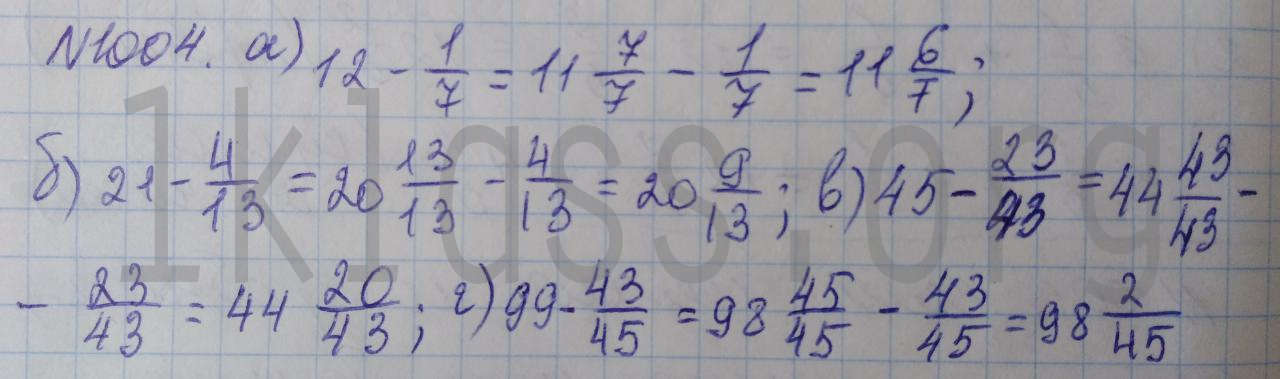 №1004. а) 12 - 1/7 = 11 7/7 - 1/7 = 11 6/7;
б) 21 - 4/13 = 20 13/13 - 4/13 = 20 9/13; в) 45 - 23/43 = 44 43/43 -
- 23/43 = 44 20/43; г) 99 - 43/45 = 98 45/45 - 43/45 = 98 2/45
1klass.org